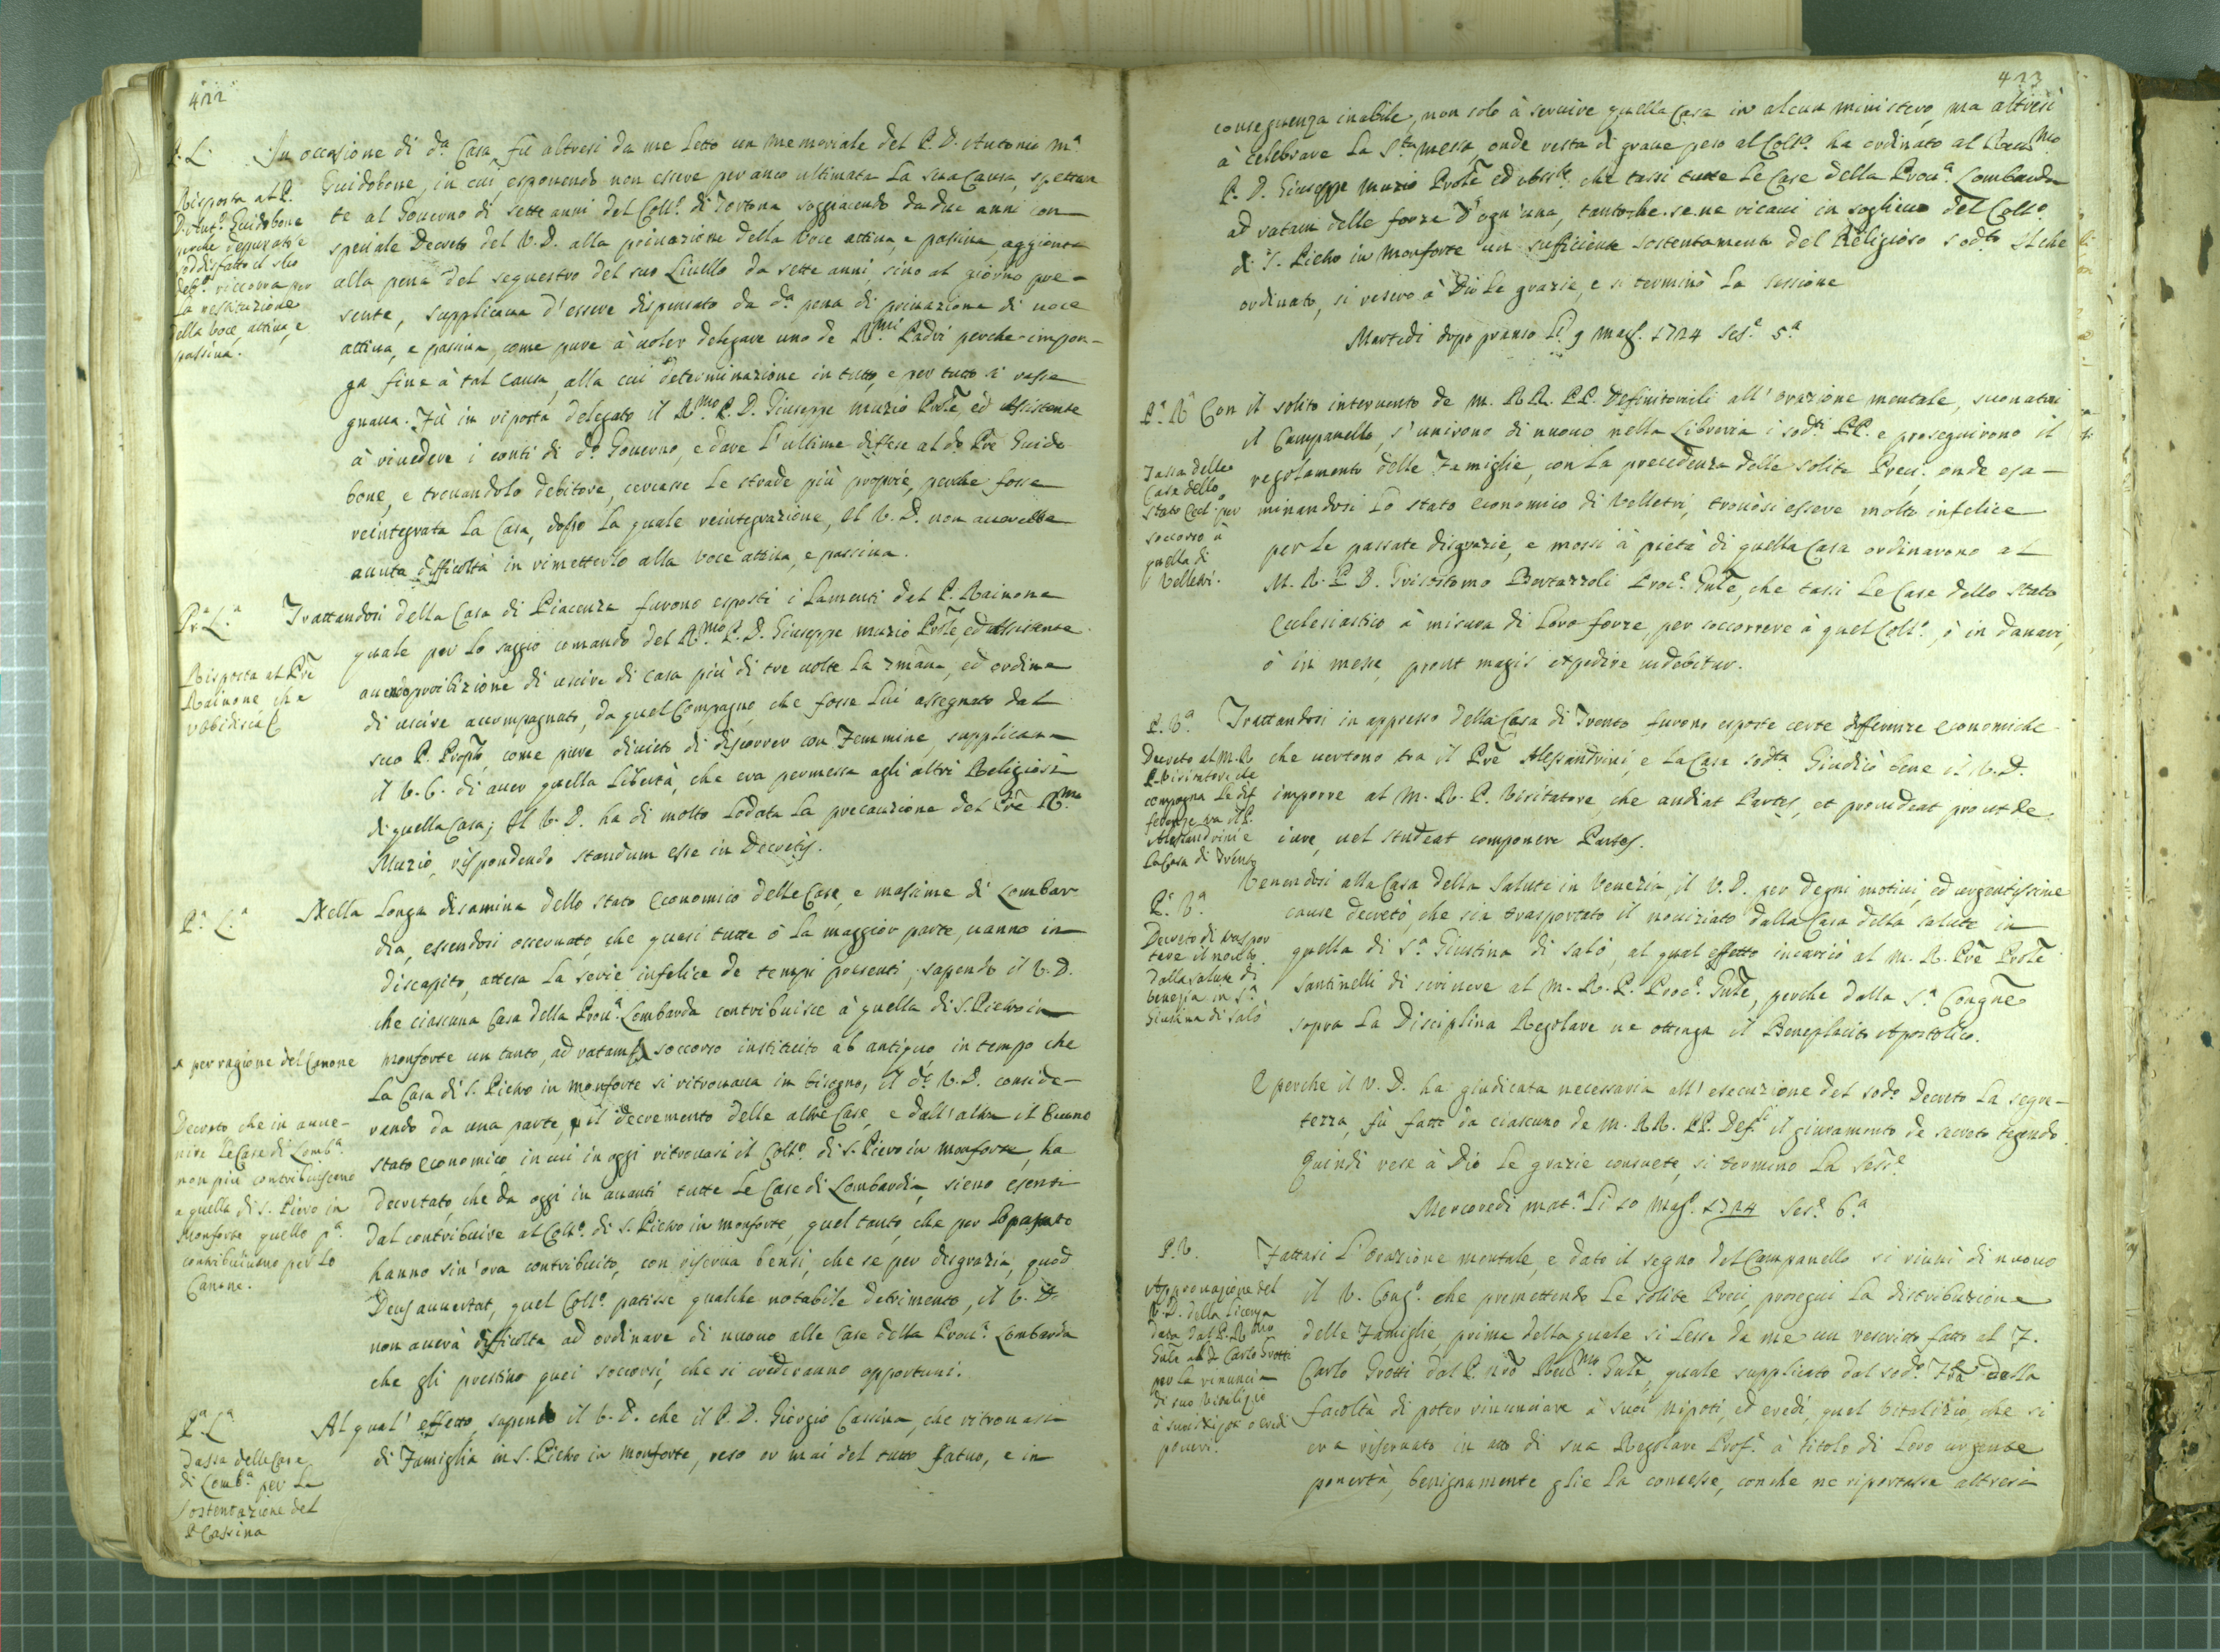 422
P. L.
In occasione di d.ª Casa, fù altresi da me letto un memoriale del P. D. Antonio M.ª
Guidobone, in cui esponendo non essere per anco ultimata la sua Causa, spettan
te al Governo di sette anni del Coll.º di Tortona soggiacendo da due anni con
speciale Decreto del V. D. alla privazione della voce attiva, e passiva, aggionta
alla pena del sequestro del suo Livello da sette anni, sino al giorno pre-
sente, supplicava d'essere dispensato da d.ª pena di privazione di voce
attiva, e passiva, come pure à voler delegare uno de R.mi Padri perche impon-
ga fine à tal causa, alla cui determinazione in tutto, e per tutto si rasse
gnava. Fù in risposta delegato il R.mo P. D. Giuseppe Muzio Prõle, ed Assistente
à rivedere i conti di d.º Governo, e dare l'ultime difese al d.º Prẽ Guido
bone, e trovandolo debitore, cercasse le strade più proprie, perche fosse
reintegrata la Casa, dopo la quale reintegrazione, il V. D. non averebbe
avuta difficoltà in rimetterlo alla voce attiva, e passiva.
Risposta al P.
D. Ant.º Guidobone
perche depurato e
soddisfatto il suo
deb.º riccorra per
la restituzione
della voce attiva, e
passiva.
P.ª L.ª
Trattandosi della Casa di Piacenza furono esposti i lamenti del P. Rainone
quale per lo saggio comando del R.mo P. D. Giuseppe Muzio Prõle, ed Assistente
avendo proibizione di uscire di casa più di tre volte la 7mãna, ed ordine
di uscire accompagnato, da quel Compagno che fosse lui assegnato dal
suo P. Prop.to come pure divieto di discorrer con Femmine, supplicava
il V. C. di aver quella libertà, che era permessa agli altri Religiosi
di quella Casa; Il V. D. ha di molto lodata la precauzione del Prẽ R.mo
Muzio, rispondendo standum esse in Decretis.
Risposta al Prẽ
Rainone, che
ubbidisca
P.ª L.ª
Nella longa disamina dello stato economico delle Case, e massime di Lombar
dia, essendosi osservato, che quasi tutte ò la maggior parte, vanno in
discapito, attesa la serie infelice de tempi presenti, sapendo il V. D.
che ciascuna Casa della Prov.ª Lombarda contribuisce à quella di S. Pietro in
Monforte un tanto, ad ratam, soccorso instituito ab antiquo in tempo che
per ragione del Canone
la Casa di S. Pietro in Monforte si ritrovava in bisogno, il d.º V. D. conside-
rando da una parte, il decremento delle altre Case, e dall'altra il buono
stato economico, in cui in oggi ritrovasi il Coll.º di S. Pietro in Monforte, ha
decretato, che da oggi in avanti tutte le Case di Lombardia, sieno esenti
dal contribuire al Coll.º di S. Pietro in Monforte, quel tanto, che per lo passato
hanno sin'ora contribuito, con riserva bensi, che se per disgrazia, quod
Deus avvertat, quel Coll.º patisse qualche notabile detrimento, il V. D.
non averà difficoltà, ad ordinare di nuovo alle Case della Prov.ª Lombarda
che gli prestino quei soccorsi, che si crederanno opportuni.
Decreto che in avve-
nire le Case di Lomb.ª
non più contribuiscono
a quella di S. Pietro in
Monforte quello p.ª
contribuivano per lo
Canone.
P.ª L.ª
Al qual' effetto, sapendo il V. D. che il P. D. Giorgio Cassina, che ritrovasi
di Famiglia in S. Pietro in Monforte, reso or mai del tutto fatuo, e in
Tassa delle Case
di Lomb.ª per la
sostentazione del
P. Cassina
423
conseguenza inabile, non solo à servire quella Casa in alcun ministero, ma altresi
à celebrare la S.ta Messa, onde resta di grave peso al Coll.º ha ordinato al Rev.mo
P. D. Giuseppe Muzio Prõle ed Assis.te che tassi tutte le Case della Prov.ª Lombarda
ad ratam delle forze d'ogn'una, tantoche se ne ricavi in soglievo del Coll.º
di S. Pietro in Monforte un sufficiente sostentamento del Religioso sod.to Il che
ordinato, si resero à Dio le grazie, e si terminò la sessione
Martedi dopo pranso Li 9 Mag. 1724 Ses.e 5.ª
P.ª R.ª
Con il solito intervento de M. RR. PP. Definitorili all'orazione mentale, suonatosi
il Campanello, s'unirono di nuovo nella Libreria i sod.ti PP. e proseguirono il
regolamento delle Famiglie, con la precedenza delle solite Preci, onde esa-
minandosi lo stato economico di Velletri, trovòsi essere molto infelice
per le passate disgrazie, e mossi à pietà di quella Casa ordinarono al
M. R. P. D. Grisostomo Bertazzoli Proc.e Gnãle, che tassi le Case dello Stato
Ecclesiastico à misura di loro forze, per soccorrere à quel Coll.º, ò in danari,
ò in messe, prout magis expedire videbitur.
Tassa delle
Case dello
Stato Eccl.º per
soccorso à
quella di
Velletri.
P. V.ª
Trattandosi in appresso della Casa di Trento furono esposte certe differenze economiche
che vertono tra il Prẽ Alessandrini, e la Casa sod.ta Giudicò bene il V. D.
imporre al M. R. P. Visitatore, che audiat Partes, et provideat prout de
iure, vel studeat componere Partes.
Decreto al M. R.
P. Visitatore che
componga le dif
ferenze tra il P.
Alessandrini e
la Casa di Trento
P.ª V.ª
Venendosi alla Casa della Salute in Venezia, il V. D. per degni motivi, ed urgentissime
cause decretò, che sia trasportato il noviziato dalla Casa della Salute in
quella di S.ª Giustina di Salò, al qual effetto incaricò al M. R. Prẽ Prõle
Santinelli di scrivere al M. R. P. Proc.e Gnãle, perche dalla S.ª Congne
sopra la Disciplina Regolare ne ottenga il Beneplacito Apostolico.
Decreto di traspor
tare il novi.to
dalla Salute di
Venezia in S.ª
Giustina di Salò
E perche il V. D. ha giudicata necessaria all' esecuzione del sod.º Decreto la segre-
tezza, fù fatto da ciascuno de M. RR. PP. Def.li il giuramento de secreto tegendo.
Quindi rese à Dio le grazie consuete, si terminò la Sess.e
Mercoredi mat.ª Li 10 Mag.º 1724 Ses.e 6.ª
P. R.
Fattasi l'Orazione mentale, e dato il segno del Campanello si riunì di nuovo
il V. Cong.º che premettendo le solite Preci, prosegui la distribuzione
delle Famiglie, prima della quale si lesse da me un rescritto fatto al F.
Carlo Grotti dal P. nrõ Rev.mo Gnãle, quale supplicato dal sod.º Frã della
facoltà di poter rinunciare à suoi Nipoti, ed eredi, quel Vitalizio, che si
era riservato in atto di sua Regolare Prof.e à titolo di loro urgente
povertà, benignamente glie la concesse, conche ne riportasse altresi
Approvazione del
V. D. della licenza
data dal P. R.mo
Gnãle a Carlo Grotti
per la renuncia
di suo Vitalizio
à suoi Nipoti o eredi
poveri.